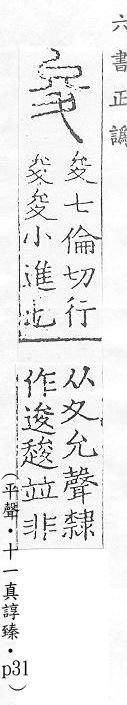 六書正譌
夋七倫切行
夋夋小進也
从夊允聲隸
作逡竝非
（平聲・十一真諄臻・p31）